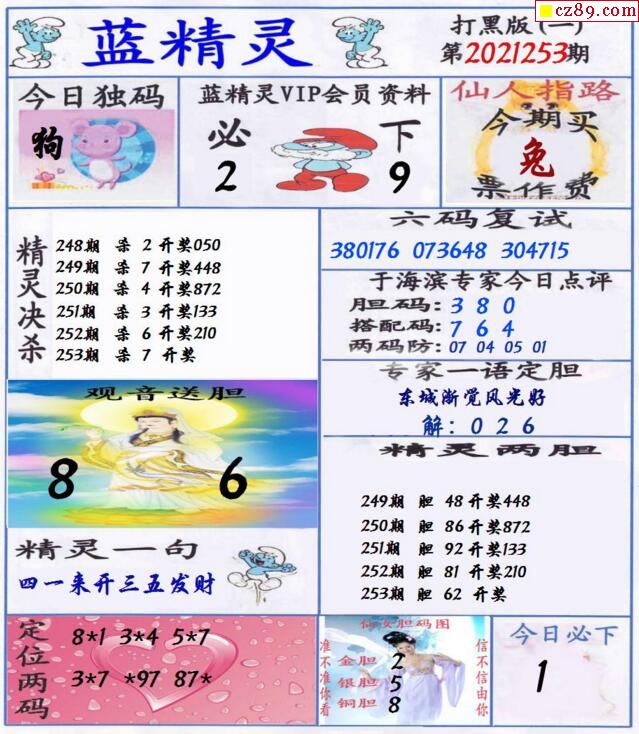 cz89.com
蓝精灵
打黑版(一)
第2021253期
今日独码
狗
蓝精灵VIP会员资料
必 下
2 9
仙人指路
今期买
兔
票作费
精灵决杀
248期 杀 2 开奖050
249期 杀 7 开奖448
250期 杀 4 开奖872
251期 杀 3 开奖133
252期 杀 6 开奖210
253期 杀 7 开奖
六码复试
380176 073648 304715
于海滨专家今日点评
胆码: 3 8 0
搭配码: 7 6 4
两码防: 07 04 05 01
专家一语定胆
东城渐觉风光好
解: 0 2 6
观音送胆
8 6
精灵两胆
249期 胆 48 开奖448
250期 胆 86 开奖872
251期 胆 92 开奖133
252期 胆 81 开奖210
253期 胆 62 开奖
精灵一句
四一来开三五发财
定位两码
8*1 3*4 5*7
3*7 *97 87*
仙女胆码图
准不准你看
金胆 2
银胆 5
铜胆 8
信不信由你
今日必下
1